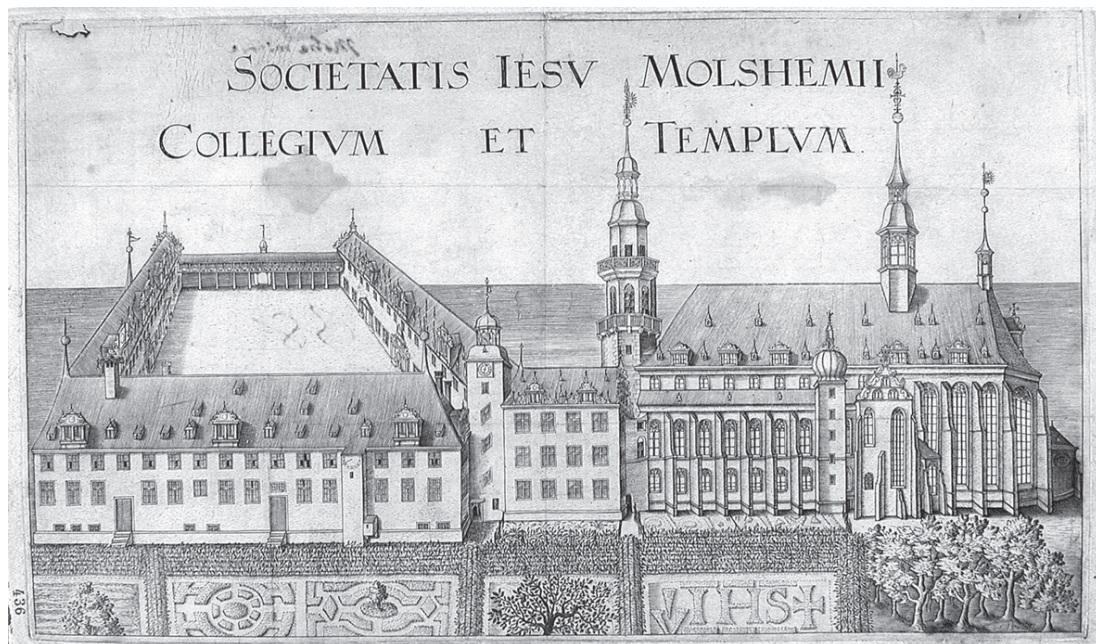 SOCIETATIS IESV MOLSHEMII
COLLEGIVM ET TEMPLVM.
IHS
436